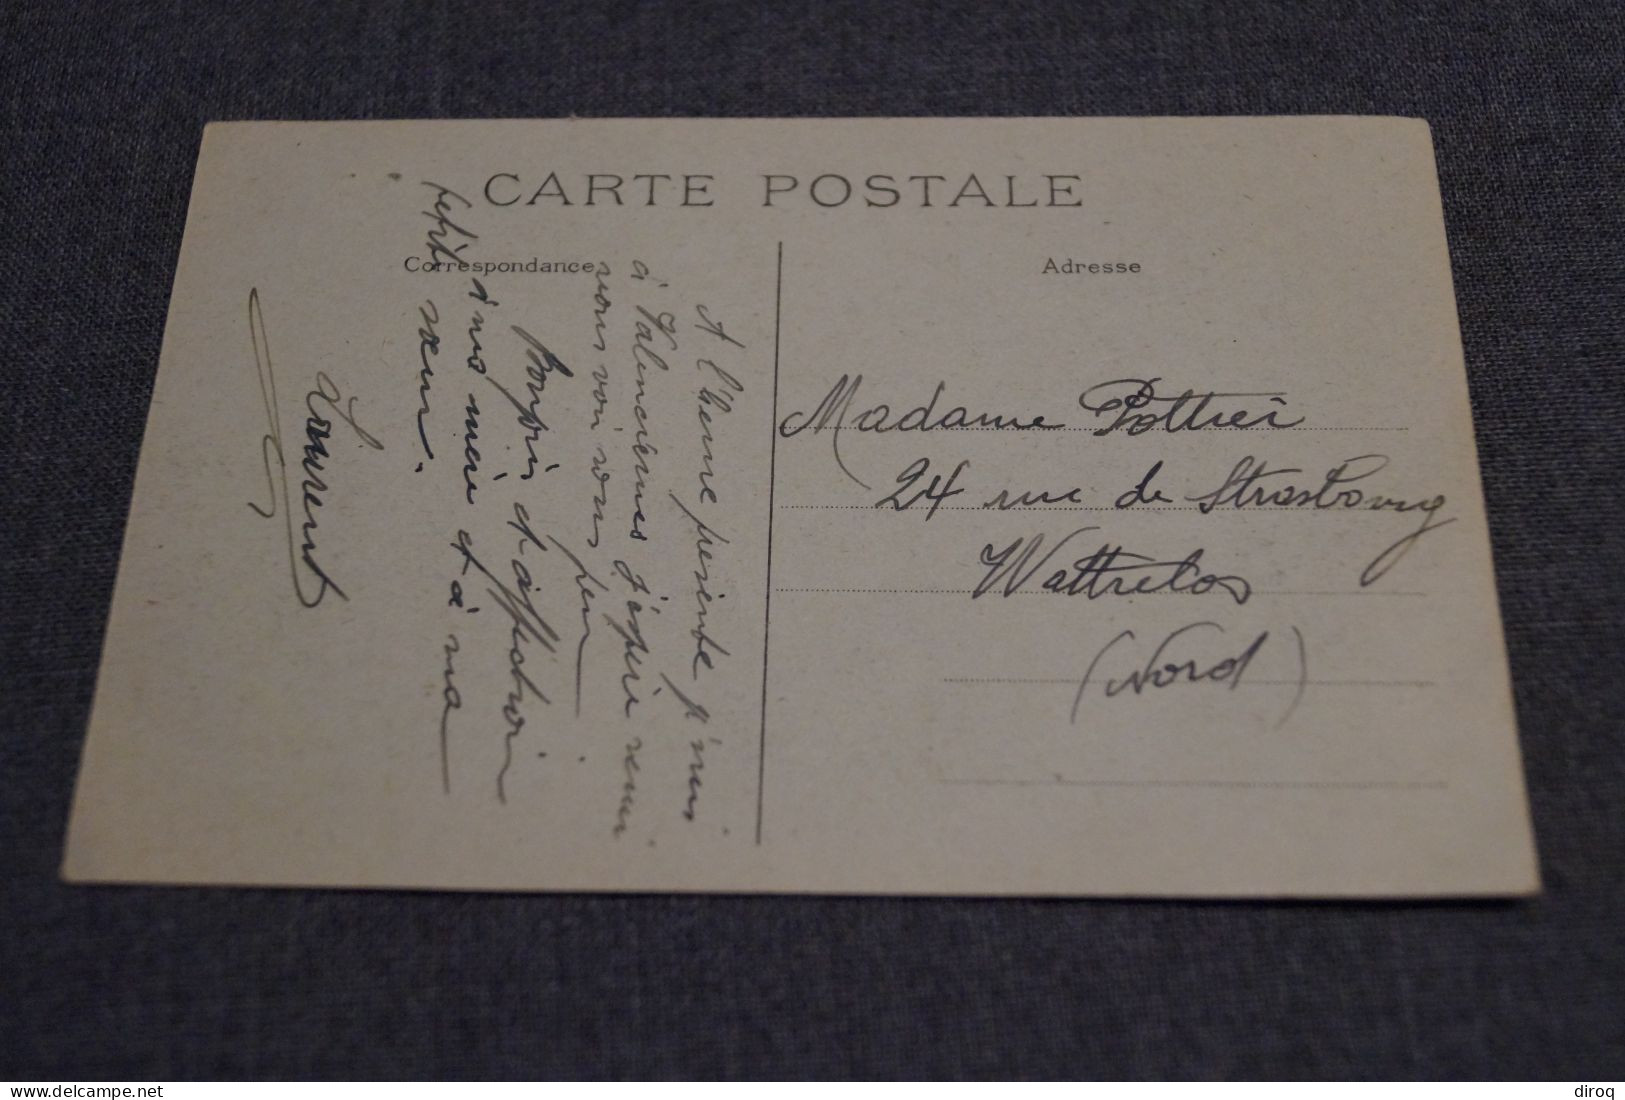 CARTE POSTALE
Correspondance
Adresse
A l'heure présente j'suis
à Valenciennes j'espère venir
vous voir sous peu
Bonjour et affection
à ma mère et à ma
petite sœur.
Laurent
Madame Pottier
24 rue de Strasbourg
Wattrelos
(Nord)
delcampe.net
diroq